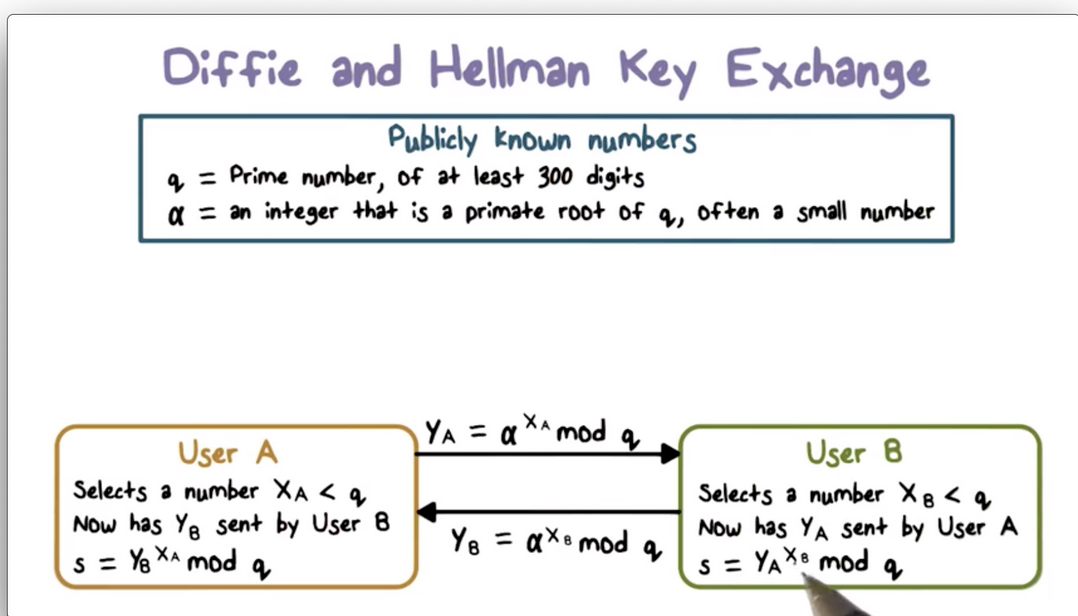 Diffie and Hellman Key Exchange
Publicly known numbers
q = Prime number, of at least 300 digits
α = an integer that is a primate root of q, often a small number
User A
Selects a number X_A < q
Now has Y_B sent by User B
s = Y_B^X_A mod q
Y_A = α^X_A mod q
Y_B = α^X_B mod q
User B
Selects a number X_B < q
Now has Y_A sent by User A
s = Y_A^X_B mod q